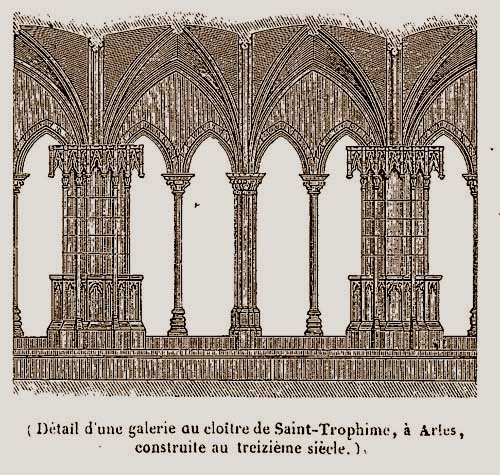 ( Détail d'une galerie au cloître de Saint-Trophime, à Arles,
construite au treizième siècle. ).